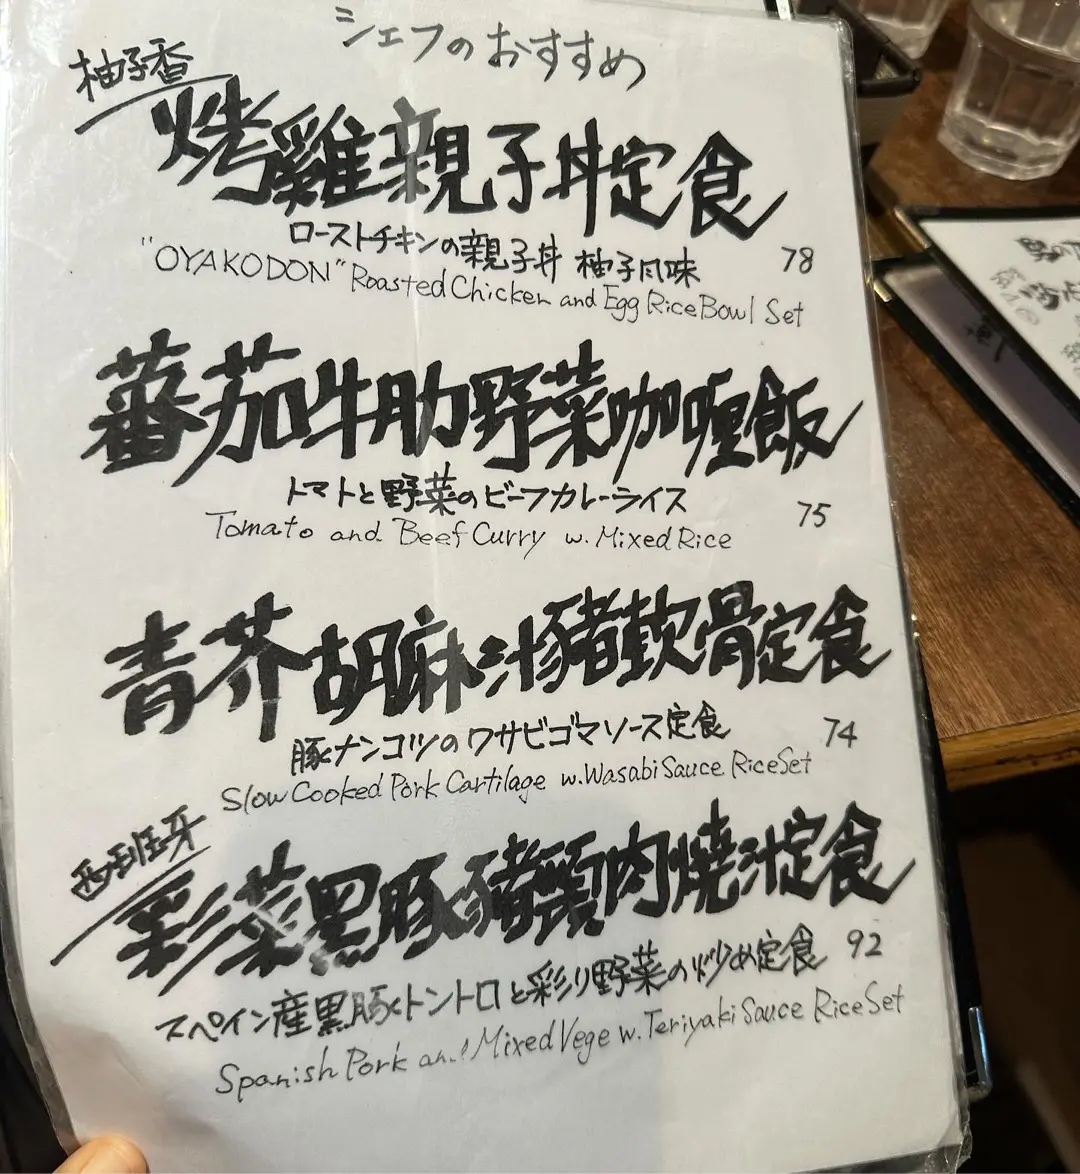 シェフのおすすめ
柚子香
烤雞親子丼定食
ローストチキンの親子丼 柚子風味 78
"OYAKODON" Roasted Chicken and Egg Rice Bowl Set
蕃茄牛肋野菜咖喱飯
トマトと野菜のビーフカレーライス 75
Tomato and Beef Curry w. Mixed Rice
青芥胡麻汁豬軟骨定食
豚ナンコツのワサビゴマソース定食 74
Slow Cooked Pork Cartilage w. Wasabi Sauce Rice Set
西班牙
彩菜黒豚豬頸肉燒汁定食
スペイン産黒豚トントロと彩り野菜の炒め定食 92
Spanish Pork and Mixed Vege w. Teriyaki Sauce Rice Set